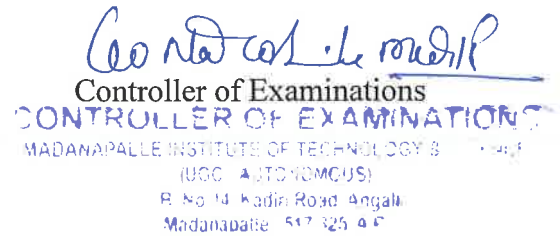 Controller of Examinations
CONTROLLER OF EXAMINATIONS
MADANAPALLE INSTITUTE OF TECHNOLOGY &
(UGC AUTONOMOUS)
P. No 14 Kadiri Road Angallu
Madanapalle 517 325 A.P